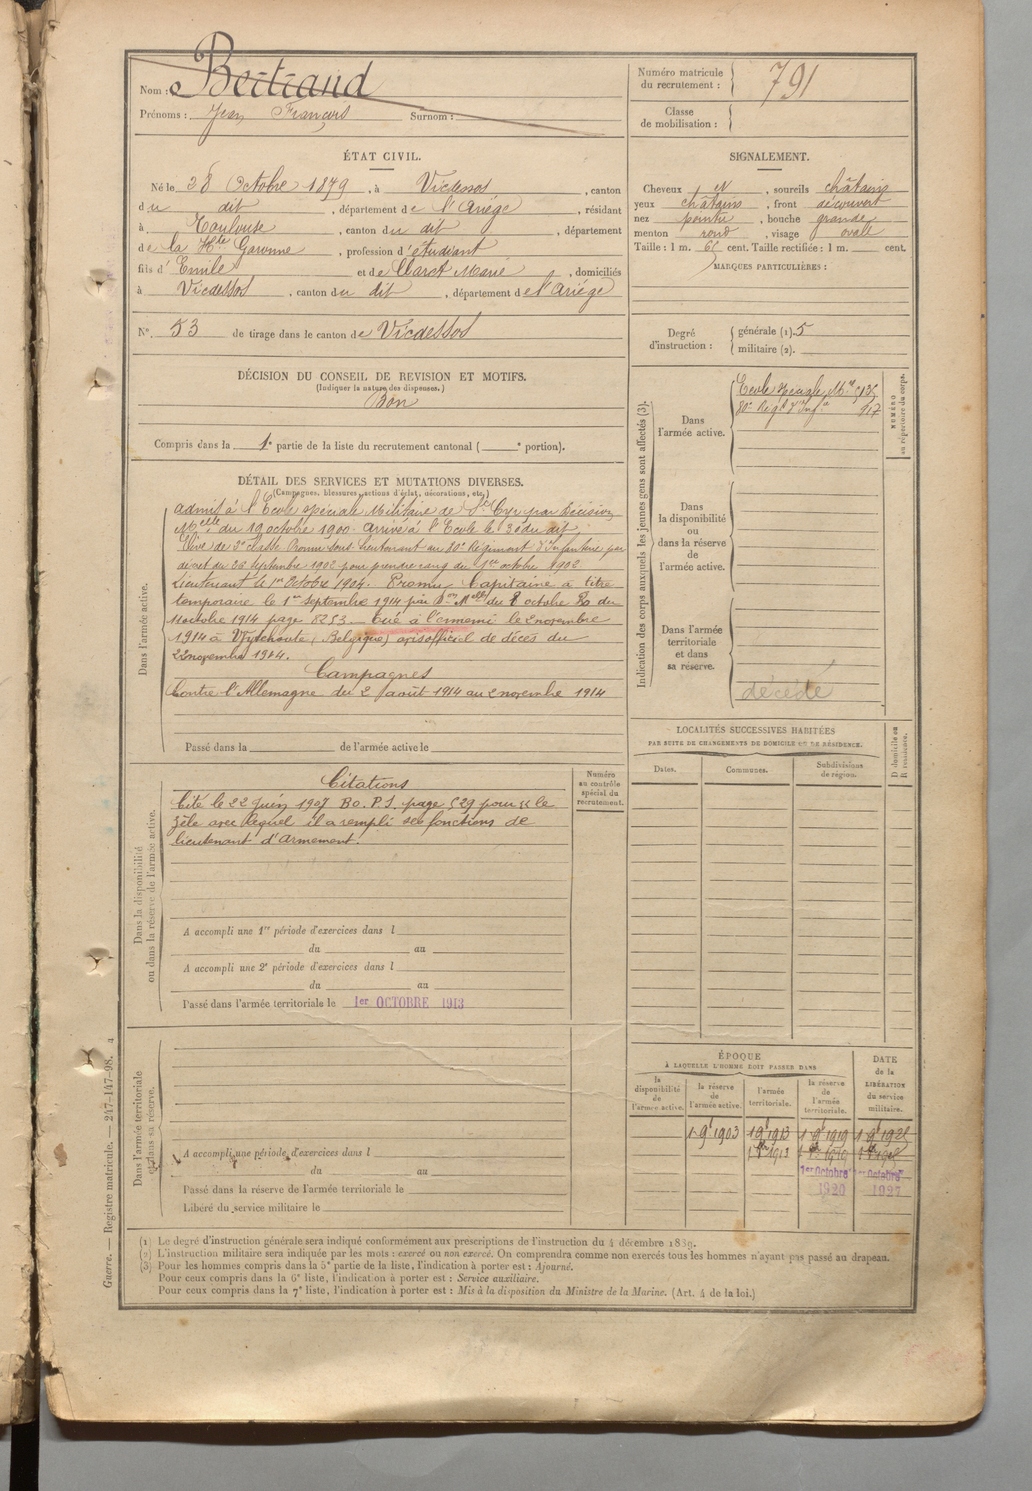 Nom : Bertrand
Prénoms : Jean François Surnom :
Numéro matricule du recrutement : 791
Classe de mobilisation :
ÉTAT CIVIL.
Né le 28 Octobre 1879, à Vicdessos, canton
du dit, département de l'Ariége, résidant
à Toulouse, canton du dit, département
de la Hte Garonne, profession d'étudiant
fils d'Emile et de Claret Marie, domiciliés
à Vicdessos, canton du dit, département de l'Ariége
N° 53 de tirage dans le canton de Vicdessos
SIGNALEMENT.
Cheveux et, sourcils châtains
yeux châtains, front découvert
nez pointu, bouche grande
menton rond, visage ovale
Taille : 1 m. cent. Taille rectifiée : 1 m. cent.
MARQUES PARTICULIÈRES :
Degré d'instruction : générale (1). 5
militaire (2).
DÉCISION DU CONSEIL DE REVISION ET MOTIFS.
(Indiquer la nature des dispenses.)
Bon
Compris dans la 1e partie de la liste du recrutement cantonal ( e portion).
DÉTAIL DES SERVICES ET MUTATIONS DIVERSES.
(Campagnes, blessures, actions d'éclat, décorations, etc.)
Dans l'armée active.
admis à l'Ecole spéciale Militaire de St Cyr par Décision
Melle du 19 octobre 1900. Arrivé à l'Ecole le 30 du dit,
Elève de 2e classe Promu sous-Lieutenant au 80e Régiment d'Infanterie par
décret du 26 Septembre 1902 pour prendre rang du 1er octobre 1902
Lieutenant le 1er Octobre 1904. Promu Capitaine à titre
temporaire le 1er septembre 1914 par Don Melle du 8 octobre
11 octobre 1914 page 8253. Tué à l'ennemi le 2 novembre
1914 à Wytchaete (Belgique) avis officiel de décès du
22 novembre 1914.
Campagnes
Contre l'Allemagne du 2 août 1914 au 2 novembre 1914
Passé dans la de l'armée active le
Indication des corps auxquels les jeunes gens sont affectés (3).
NUMÉRO au répertoire du corps.
Dans l'armée active.
Ecole spéciale Mre
80e Régt d'Infie 917
Dans la disponibilité ou dans la réserve de l'armée active.
Dans l'armée territoriale et dans sa réserve.
décédé
LOCALITÉS SUCCESSIVES HABITÉES
PAR SUITE DE CHANGEMENTS DE DOMICILE OU DE RÉSIDENCE.
Dates. Communes. Subdivisions de région. D domicile ou R résidence.
Dans la disponibilité ou dans la réserve de l'armée active.
Numéro au contrôle spécial du recrutement.
Citations
Cité le 22 Juin 1907 B.O.P.S. page 529 pour "le
zèle avec lequel il a rempli ses fonctions de
lieutenant d'armement.
A accompli une 1re période d'exercices dans l
du au
A accompli une 2e période d'exercices dans l
du au
Passé dans l'armée territoriale le 1er OCTOBRE 1913
Dans l'armée territoriale et dans sa réserve.
A accompli une période d'exercices dans l
du au
Passé dans la réserve de l'armée territoriale le
Libéré du service militaire le
ÉPOQUE
À LAQUELLE L'HOMME DOIT PASSER DANS
DATE de la LIBÉRATION du service militaire.
la disponibilité de l'armée active. la réserve de l'armée active. l'armée territoriale. la réserve de l'armée territoriale.
1 9 1903 1 9 1913 1 9 1919
1er Octobre 1er Octobre
1920 1927
(1) Le degré d'instruction générale sera indiqué conformément aux prescriptions de l'instruction du 4 décembre 1889.
(2) L'instruction militaire sera indiquée par les mots : exercé ou non exercé. On comprendra comme non exercés tous les hommes n'ayant pas passé au drapeau.
(3) Pour les hommes compris dans la 5e partie de la liste, l'indication à porter est : Ajourné.
Pour ceux compris dans la 6e liste, l'indication à porter est : Service auxiliaire.
Pour ceux compris dans la 7e liste, l'indication à porter est : Mis à la disposition du Ministre de la Marine. (Art. 4 de la loi.)
Guerre. — Registre matricule. — 247-147-98.